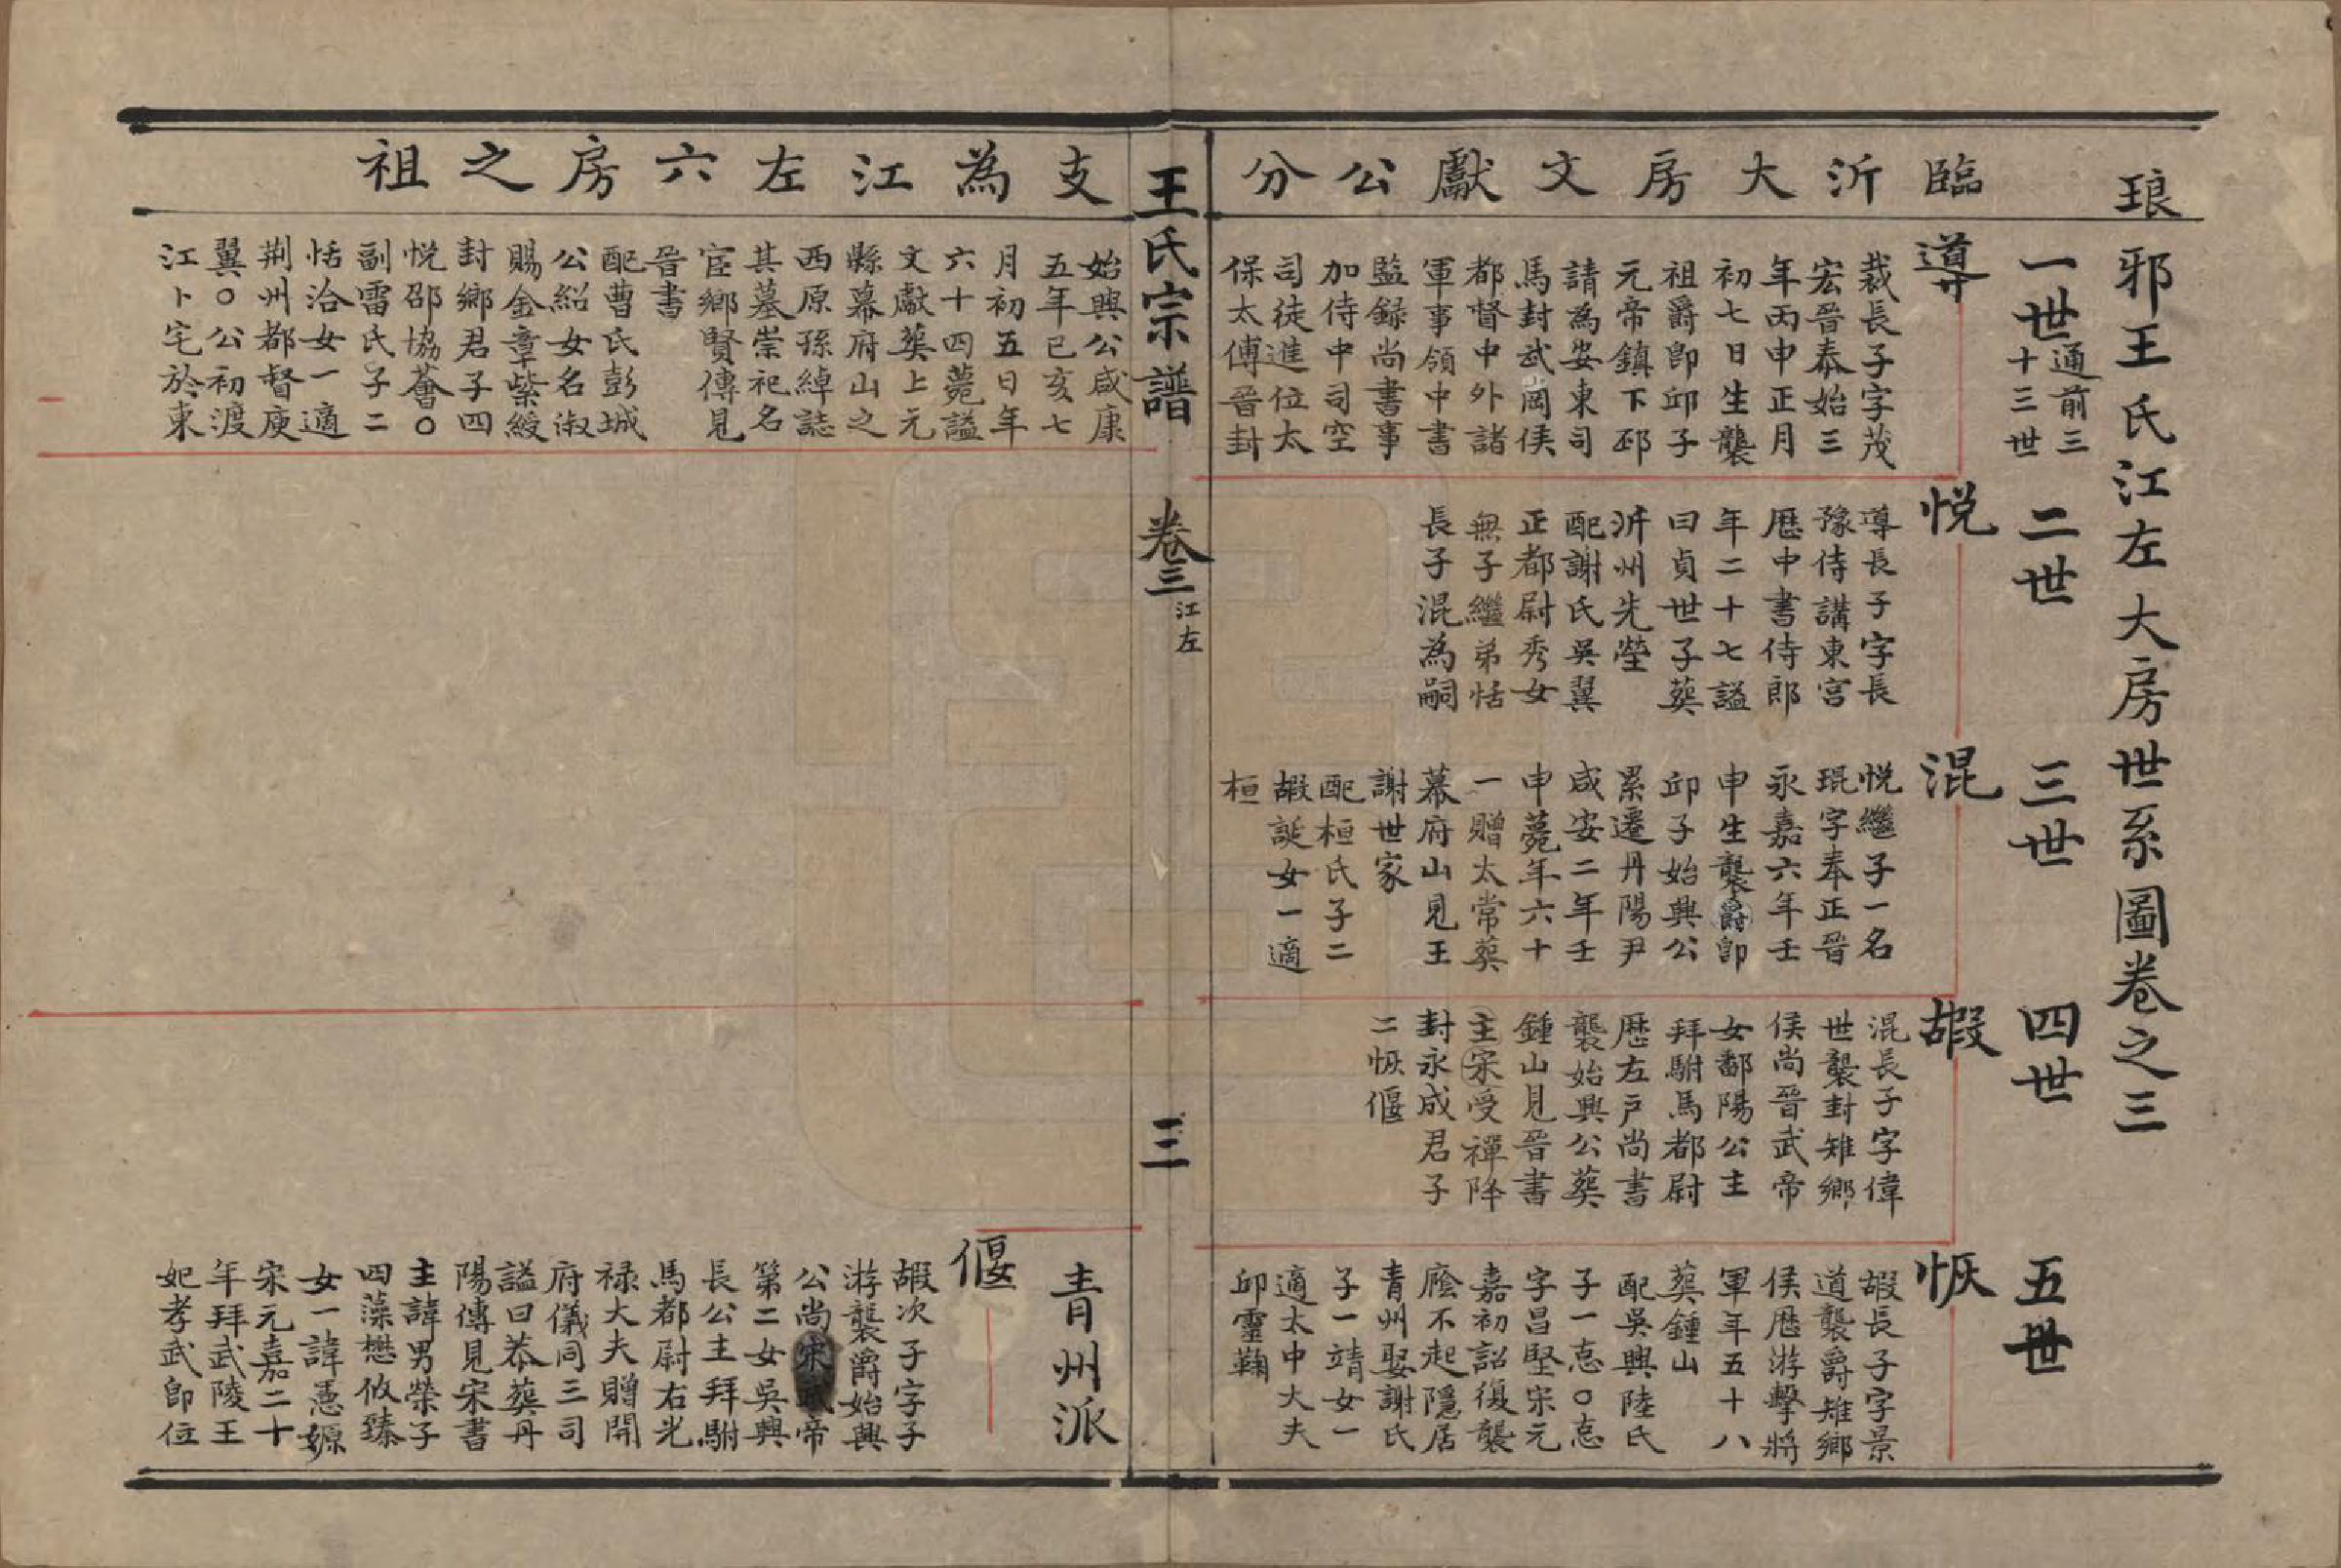 琅邪王氏江左大房世系圖卷之三
臨沂大房文獻公分
一世
通前三
十三世
二世
三世
四世
五世
導
裁長子字茂
宏晉泰始三
年丙申正月
初七日生襲
祖爵即邱子
元帝鎮下邳
請為安東司
馬封武岡侯
都督中外諸
軍事領中書
監録尚書事
加侍中司空
司徒進位太
保太傅晉封
悦
導長子字長
豫侍講東宮
歷中書侍郎
年二十七謚
曰貞世子葬
沂州先塋
配謝氏吳翼
正都尉秀女
無子繼弟恬
長子混為嗣
混
悦繼子一名
琨字奉正晉
永嘉六年壬
申生襲爵即
邱子始興公
累遷丹陽尹
咸安二年壬
申薨年六十
一贈太常葬
幕府山見王
謝世家
配桓氏子二
嘏誕女一適
桓
嘏
混長子字偉
世襲封雉鄉
侯尚晉武帝
女鄱陽公主
拜駙馬都尉
歷左戶尚書
襲始興公葬
鍾山見晉書
主宋受禪降
封永成君子
二恢偃
恢
嘏長子字景
道襲爵雉鄉
侯歷游擊將
軍年五十八
葬鍾山
配吳興陸氏
子一悳〇悳
字昌堅宋元
嘉初詔復襲
廕不起隱居
青州娶謝氏
子一靖女一
適太中大夫
邱靈鞠
王氏宗譜
卷三
江左
三
支為江左六房之祖
始興公咸康
五年己亥七
月初五日年
六十四薨謚
文獻葬上元
縣幕府山之
西原孫綽誌
其墓崇祀名
宦鄉賢傳見
晉書
配曹氏彭城
公紹女名淑
賜金章紫綬
封鄉君子四
悦邵協薈〇
副雷氏子二
恬洽女一適
荆州都督庾
翼〇公初渡
江卜宅於東
青州派
偃
嘏次子字子
游襲爵始興
公尚宋武帝
第二女吳興
長公主拜駙
馬都尉右光
禄大夫贈開
府儀同三司
謚曰恭葬丹
陽傳見宋書
主諱男榮子
四藻懋攸臻
女一諱憲嫄
宋元嘉二十
年拜武陵王
妃孝武即位